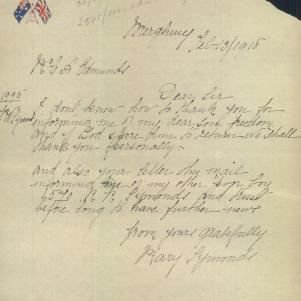 Feb 13/1918
Mr G A Edmunds
1995
Dear Sir
I dont know how to thank you for
informing me of my dear sons freedom
and if God spare him to return we shall
thank you personally
and also your letter by mail
informing me of my other poor boy
Symonds and trust
before long to have further news
from yours gratefully
Mary Symonds